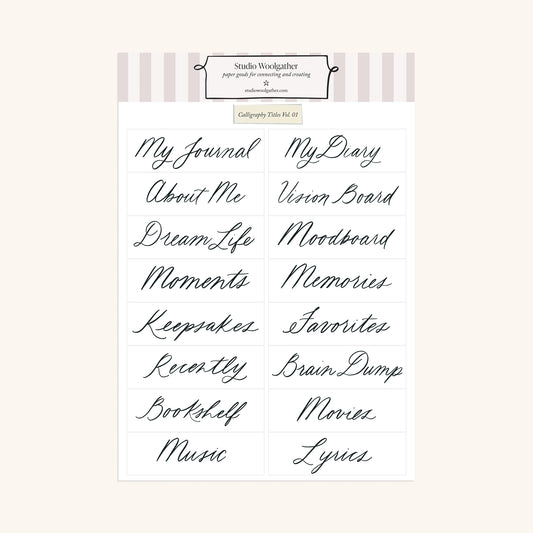 Studio Woolgather
paper goods for connecting and creating
studiowoolgather.com
Calligraphy Titles Vol. 01
My Journal
My Diary
About Me
Vision Board
Dream Life
Moodboard
Moments
Memories
Keepsakes
Favorites
Recently
Brain Dump
Bookshelf
Movies
Music
Lyrics